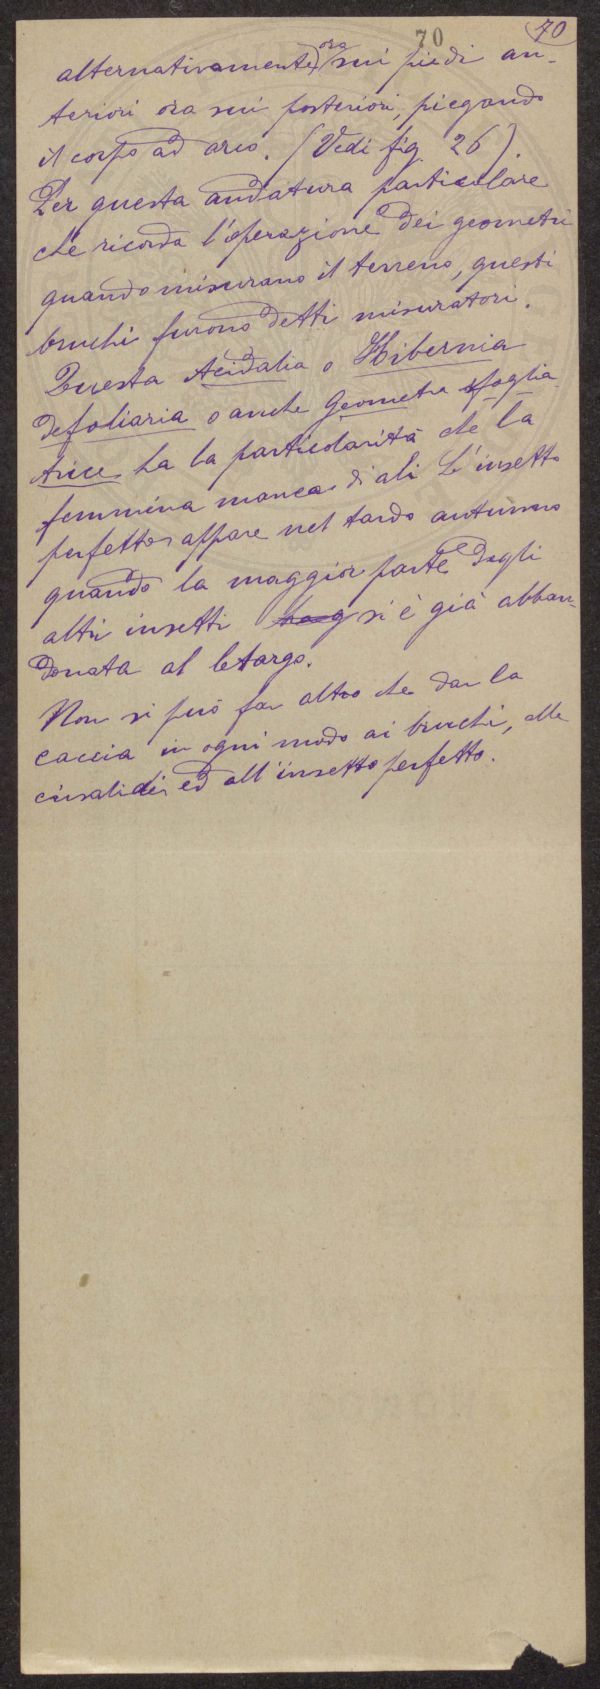 70
70
alternativamente, ora sui piedi an-
teriori ora sui posteriori, piegando
il corpo ad arco. (Vedi fig. 26).
Per questa andatura particolare
che ricorda l'operazione dei geometri
quando misurano il terreno, questi
bruchi furono detti misuratori.
Questa Acidalia o Hibernia
defoliaria o anche Geometra sfoglia-
trice ha la particolarità che la
femmina manca di ali L'insetto
perfetto appare nel tardo autunno
quando la maggior parte degli
altri insetti si è già abban-
donata al letargo.
Non si può far altro che dar la
caccia in ogni modo ai bruchi, alle
crisalidi ed all'insetto perfetto.